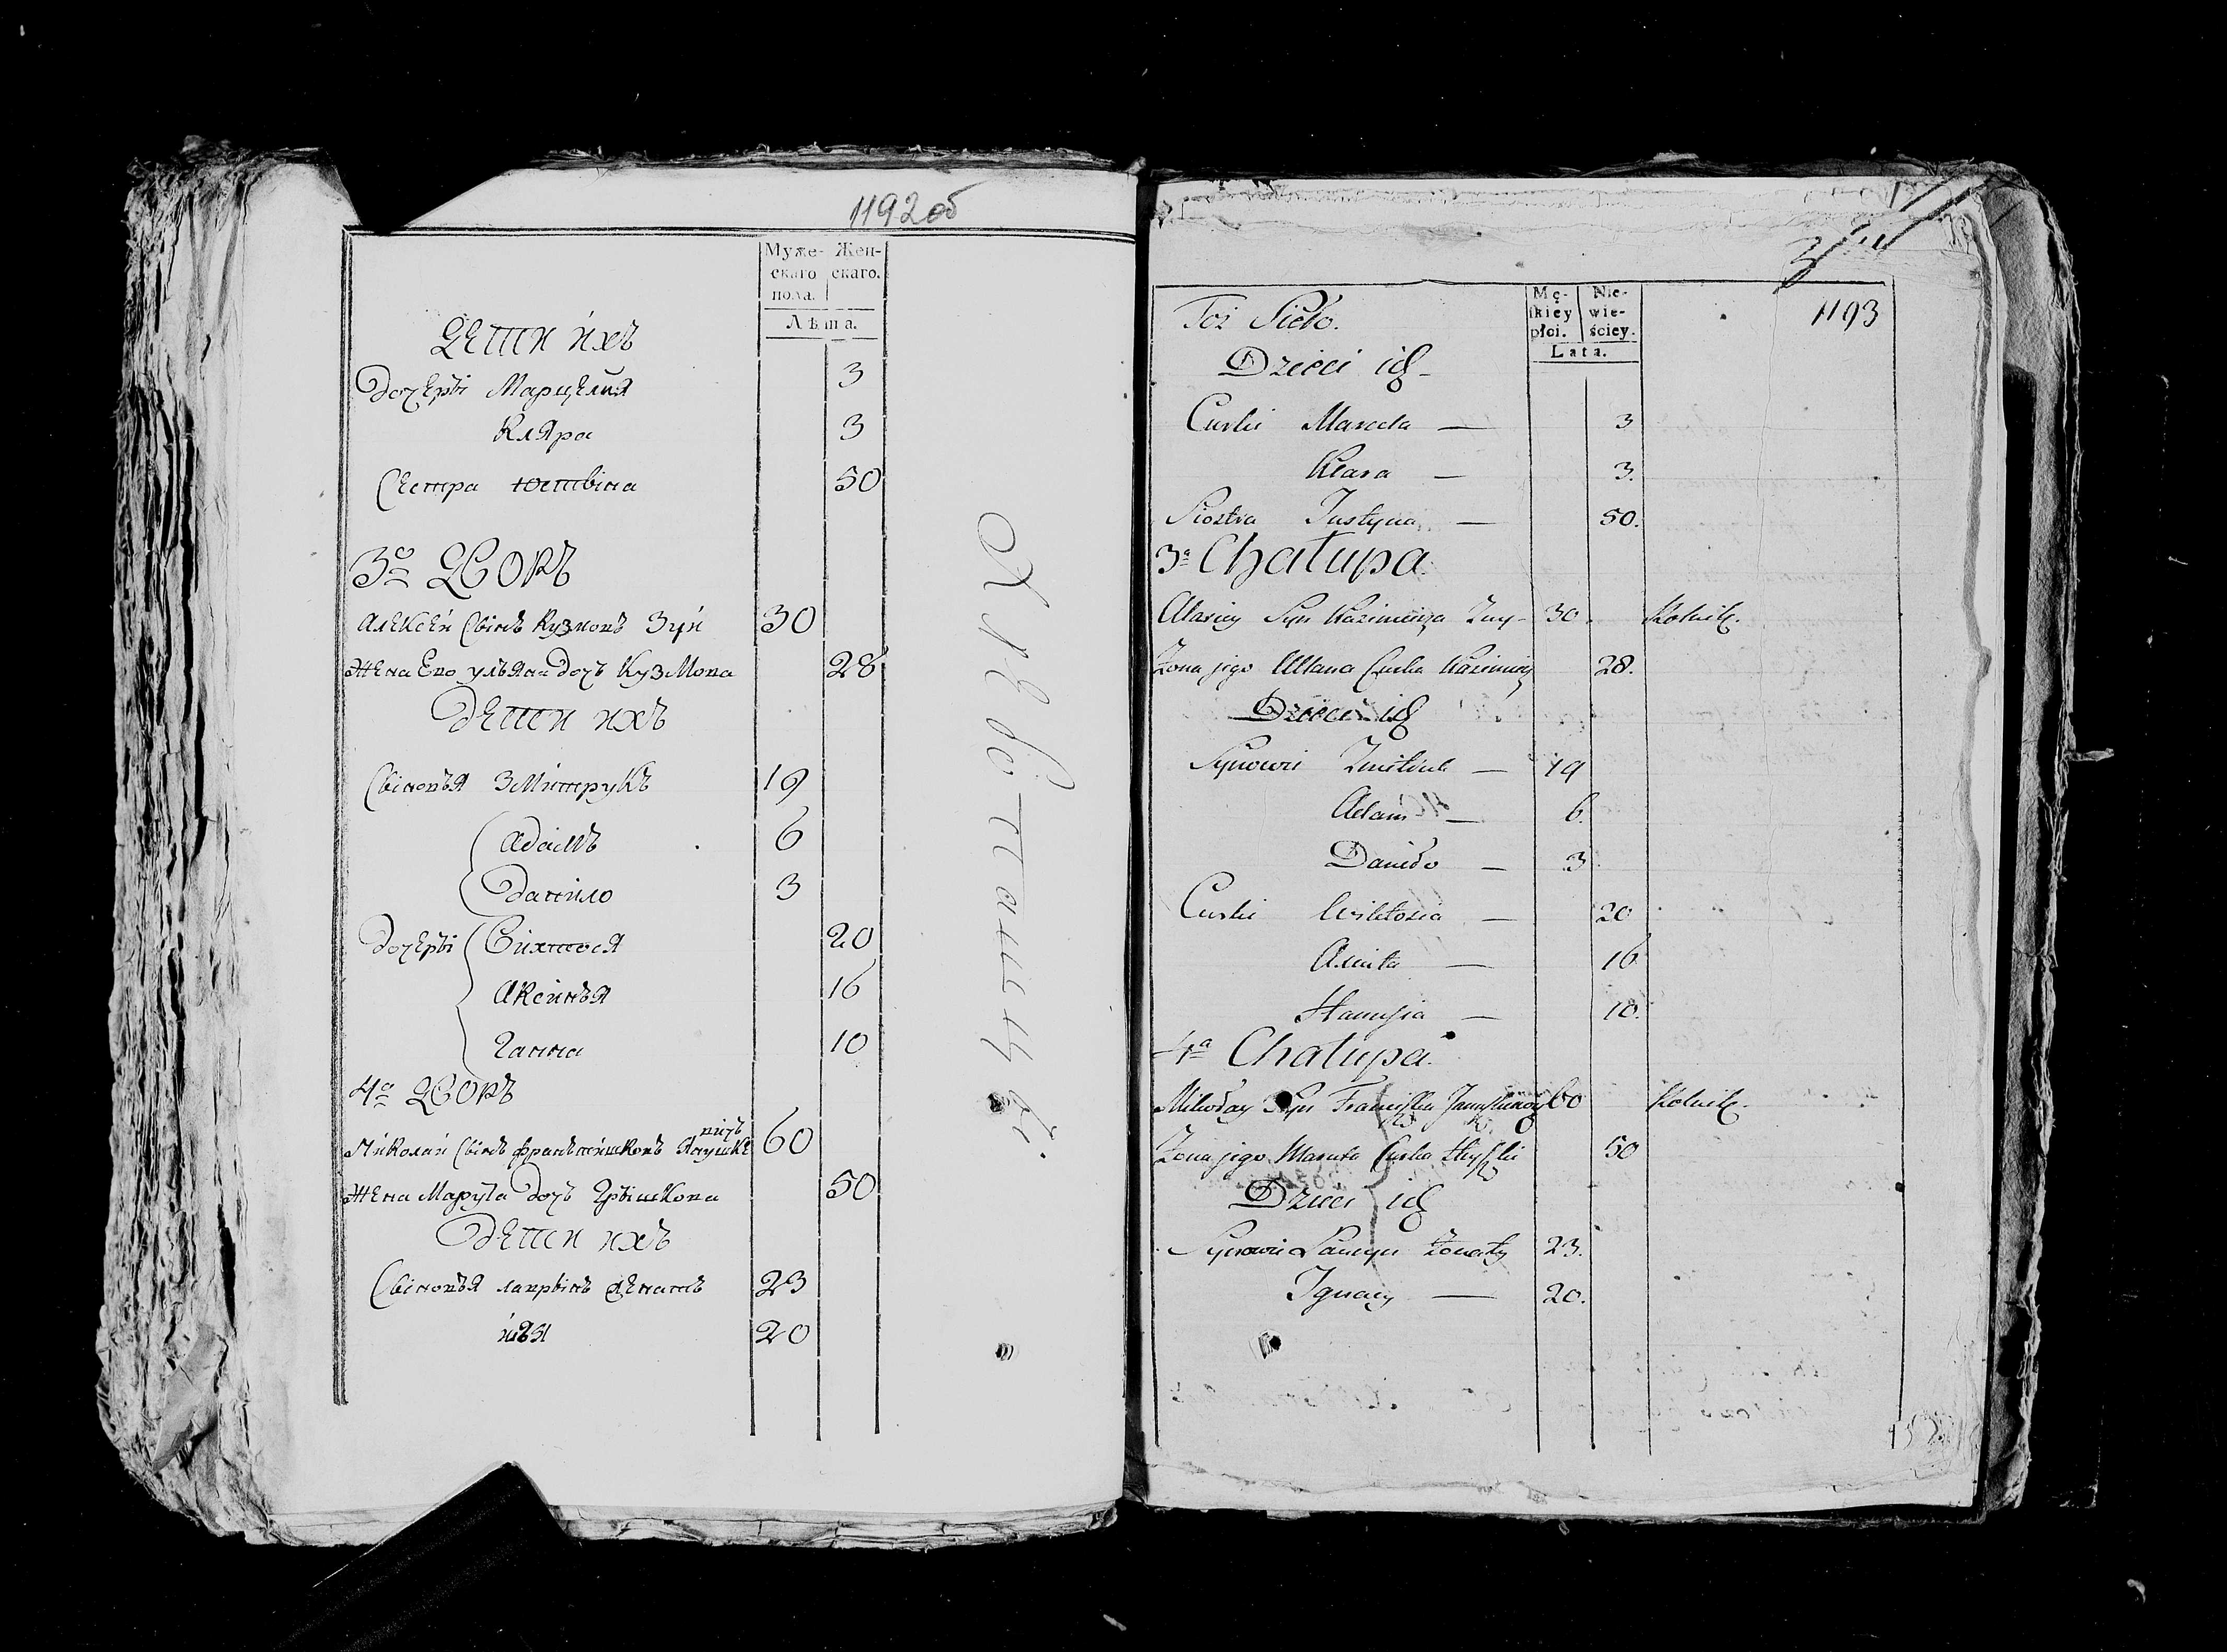 1192 об
Муже- Жен-
скаго скаго.
пола.
Лѣта.
Дети ихъ
Дочерѣ Марцелия 3
Кляра 3
Сестра Юстына 50
3й Дворъ
Алексей Сынъ Кузмовъ Зуй 30
Жена Его Ульяна Дочъ Кузмова 28
Дети ихъ
Сыновья Змитрукъ 19
Адамъ 6
Данило 3
Дочеры Вихтося 20
Аксинья 16
Ганна 10
4й Дворъ
вичъ
Миколай Сынъ Францишковъ Янушке 60
Жена Марута Дочъ Грышкова 50
Дети ихъ
Сыновья лаврынъ женатъ 23
20
3
1193
Toż Sioło.
Mę- Nie-
skiey wie-
płci. ściey.
Lata.
Dzieci ich
Curki Marcela — 3
Klara — 3.
Siostra Justyna — 50.
3a Chałupa
Alaxiey Syn Kazimierza Zuy - 30. Rolnik.
Żona jego Ullana Curka Kazimierza 28.
Dzieci ich
Synowie Zmitruk — 19
Adam — 6.
Daniło — 3
Curki Wiktosia — 20
Axinia — 16
Hanusia — 10.
4a Chałupa.
Mikołay Syn Franciszka Januszkiewicz 60 Rolnik.
Żona jego Maruta Curka Hryszki 50
Dzieci ich
Synowie Ławryn Żonaty 23.
Ignacy — 20.